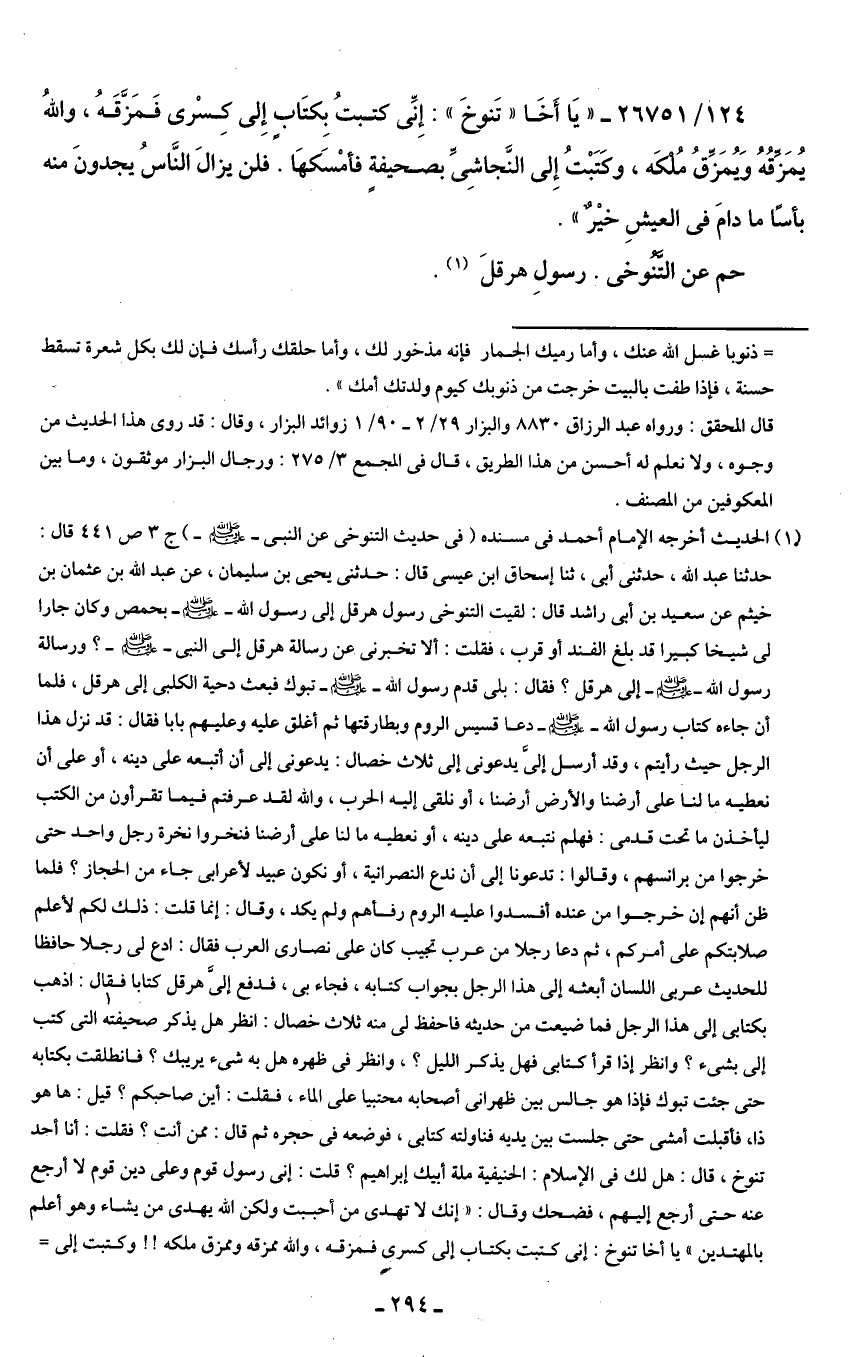 ١٢٤/ ٢٦٧٥١ ـ « يَا أَخَا « تَنوخَ » : إِنِّى كتـبتُ بِكتَابٍ إلى كِسْرى فَـمَزَّقَـهُ ، واللهُ
يُمَزِّقُهُ وَيُمَزِّقُ مُلْكَه ، وكَتَبْتُ إِلى النَّجاشىِّ بصـحيفةٍ فأمْسَكهَا . فلن يزالَ النَّاسُ يجدونَ منه
بأسًا ما دامَ فى العيشِ خيْرٌ » .
حم عن التَّنُوخى . رسولِ هرقلَ (١) .
= ذنوبا غسل الله عنك ، وأما رميك الجـمار فإنه مذخور لك ، وأما حلقك رأسك فـإن لك بكل شعرة تسقط
حسنة ، فإذا طفت بالبيت خرجت من ذنوبك كيوم ولدتك أمك » .
قال المحقق : ورواه عبد الرزاق ٨٨٣٠ والبزار ٢٩/ ٢ ـ ٩٠/ ١ زوائد البزار ، وقال : قد روى هذا الحديث من
وجـوه ، ولا نعلم له أحسن من هذا الطريق ، قال فى المجمع ٣/ ٢٧٥ : ورجال البـزار موثقـون ، ومـا بين
المعكوفين من المصنف .
(١) الحديـث أخرجه الإمـام أحمـد فى مسنده ( فى حديث التنوخى عن النبى ـ ﷺ ـ ) ج ٣ ص ٤٤١ قال :
حدثنا عبد الله ، حدثنى أبى ، ثنا إسحاق ابن عيسى قال : حـدثنى يحيى بن سليمان ، عن عبد الله بن عثمان بن
خيثم عن سعـيد بن أبى راشد قال : لقيت التنوخى رسول هرقل إلى رسـول الله ـ ﷺ ـ بحمص وكان جارا
لى شـيخا كبيرا قد بلغ الفـند أو قرب ، فقلت : ألا تخـبرنى عن رسالة هرقل إلـى النبى ـ ﷺ ـ ؟ ورسالة
رسول الله ـ ﷺ ـ إلى هرقل ؟ فقال : بلى قدم رسول الله ـ ﷺ ـ تبوك فبعث دحية الكلبى إلى هرقل ، فلما
أن جاءه كتاب رسول الله ـ ﷺ ـ دعـا قسيس الروم وبطارقتها ثم أغلق عليه وعليـهم بابا فقال : قد نزل هذا
الرجل حيث رأيتم ، وقد أرسـل إلىَّ يدعونى إلى ثلاث خصال : يدعونى إلى أن أتبـعه على دينه ، أو على أن
نعطيـه ما لنـا على أرضنا والأرض أرضنا ، أو نلقى إليـه الحرب ، والله لقـد عـرفتم فيـما تقـرأون من الكتب
ليأخـذن ما تحت قـدمى : فهلم نتبـعه على دينه ، أو نعطيـه ما لنا على أرضنا فنخـروا نخرة رجل واحـد حتى
خرجوا من برانسهم ، وقـالوا : تدعونا إلى أن ندع النصرانية ، أو نكون عبيد لأعرابى جاء من الحجاز ؟ فلما
ظن أنهم إن خرجـوا من عنده أفسـدوا عليـه الروم رفـأهم ولم يكد ، وقال : إنما قلت : ذلـك لكم لأعلم
صلابتكم على أمـركم ، ثم دعا رجلا من عـرب تجيب كان على نصـارى العرب فقال : ادع لى رجـلا حافظا
للحديث عـربى اللسان أبعثـه إلى هذا الرجل بجواب كتـابه ، فجاء بى ، فـدفع إلىَّ هرقل كتابا فـقال : اذهب
بكتابى إلى هذا الرجل فما ضيعت من حديثه فاحفظ لى منه ثلاث خصال : انظر هل يذكر صحيفته التى كتب
إلى بشىء ؟ وانظر إذا قرأ كتـابى فهل يذكـر الليل ؟ ، وانظر فى ظهره هل به شىء يريبك ؟ فـانطلقت بكتابه
حتى جئت تبوك فإذا هو جـالس بين ظهرانى أصحابه محتبيا على الماء ، فـقلت : أين صاحبكم ؟ قيل : ها هو
ذا، فأقبلت أمشى حتى جلست بين يديه فناولته كتابى ، فوضعه فى حجره ثم قال : ممن أنت ؟ فقلت : أنا أحد
تنوخ ، قال : هل لك فى الإسلام : الحنيفية ملة أبيك إبراهيم ؟ قلت : إنى رسول قوم وعلى دين قوم لا أرجع
عنه حـتى أرجع إليـهم ، فضـحك وقال : « إنك لا تهـدى من أحبـبت ولكن الله يهـدى من يشـاء وهو أعلم
بالمهتـدين » يا أخا تنوخ : إنى كـتبت بكتـاب إلى كسرى فـمزقـه ، والله ممزقه وممزق ملكه !! وكـتبت إلى =
ـ ٢٩٤ ـ